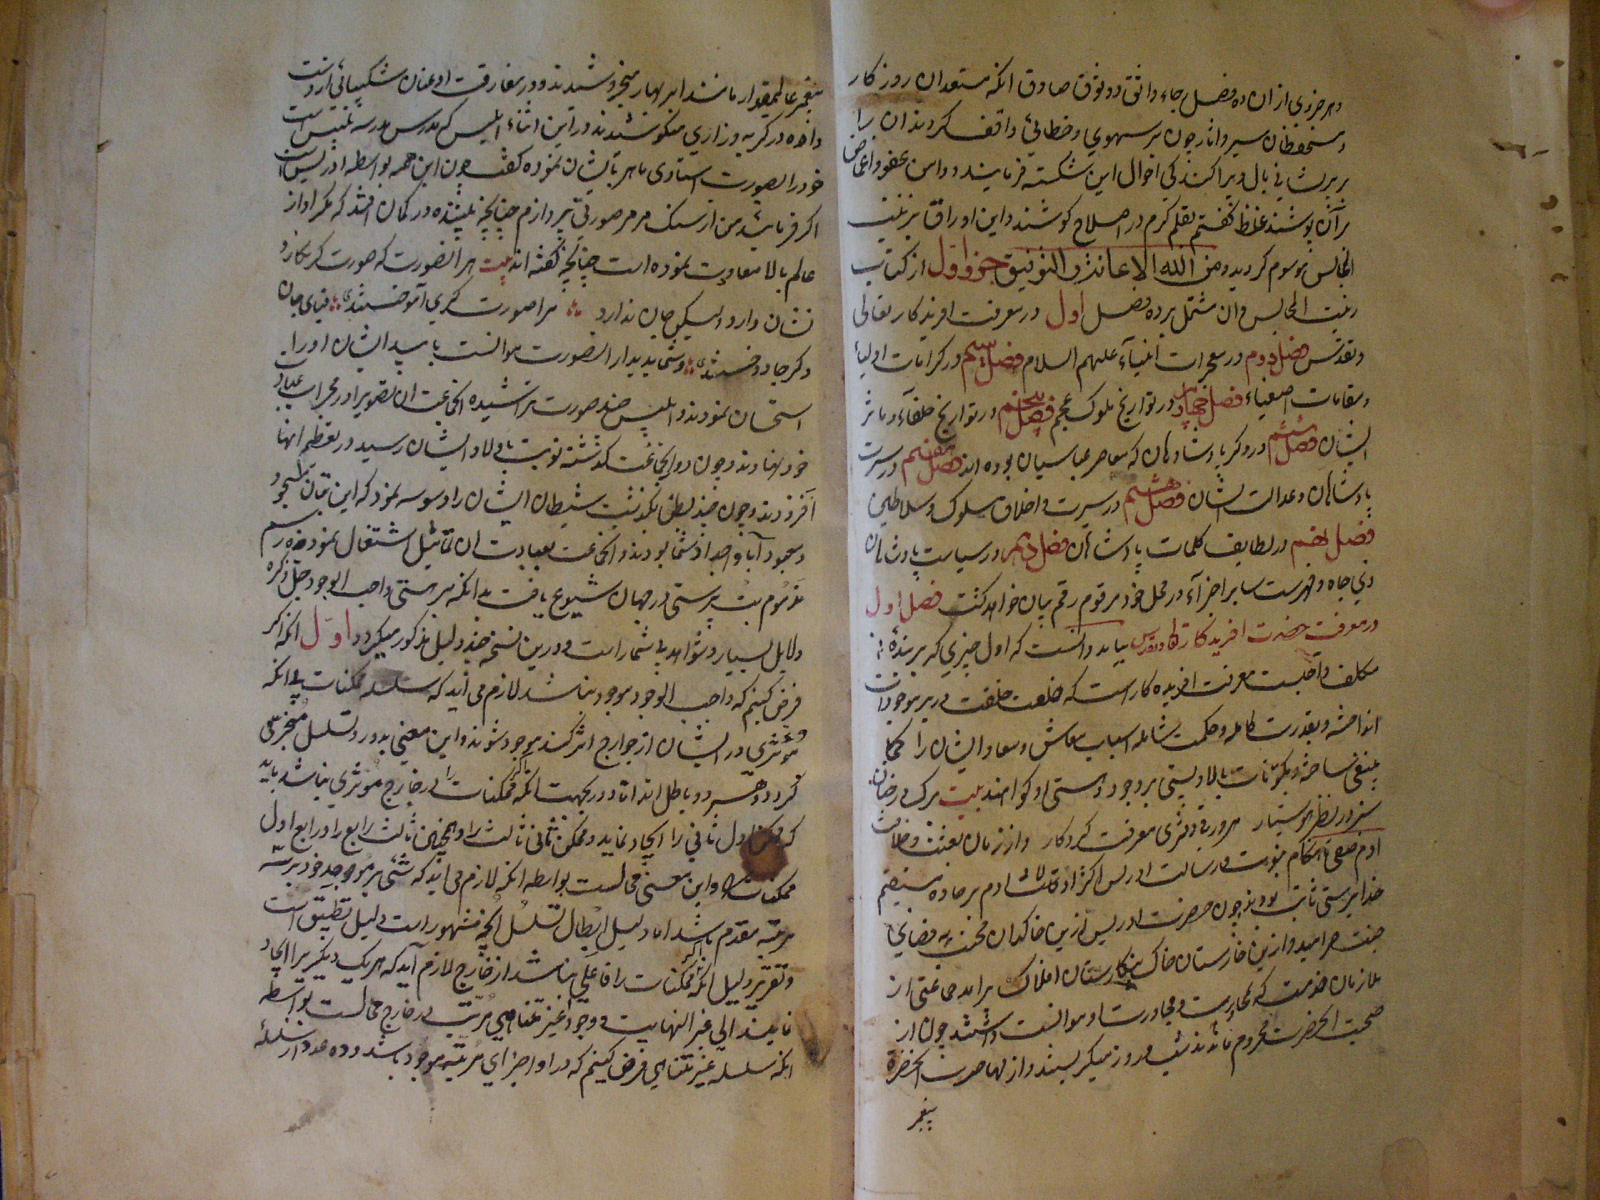 و هر جزوی از ان ده فصل جاء واثق و وثوق صادق انکه مستعدان روزکار
و مستحفظان سیر و اثار چون بر سهوی و خطائی واقف کردند ان را
بر پریشانی بال و پراکندکی احوال این شکسته فرمایند و دامن عفو و اغماض
بر آن پوشند غلط کفتم بقلم کرم در اصلاح کوشند و این اوراق بزینت
المجالس موسوم کردید و من الله الاعانة و التوفیق جزو اول از کتاب
زینت المجالس و ان مشتمل بر ده فصل اول در معرفت افریدکار تعالی
و تقدس فصل دوم در معجزات انبیآء علیهم السلام فصل سیم در کرامات اولیا
و مقامات اصفیاء فصل چهارم در تواریخ ملوک عجم فصل پنجم در تواریخ خلفآء و ماثر
ایشان فصل ششم در ذکر پادشاهان که معاصر عباسیان بوده اند فصل هفتم در سیرت
پادشاهان و عدالت ایشان فصل هشتم در سیرت و اخلاق ملوک و سلاطین
فصل نهم در لطایف کلمات پادشاهان فصل دهم در سیاست پادشاهان
ذی جاه و فهرست سایر اجزآء در محل خود مرقوم رقم بیان خواهد کشت فصل اول
در معرفت حضرت افریدکار تعالی و تقدس بباید دانست که اول چیزی که بر بندهٔ
مکلف واجبست معرفت افریده کار است که خلعت خلقت در بر موجودات
انداخته و بقدرت کامله و حکمت شامله اسباب معاش و معاد ایشان را کما
ینبغی ساخته و مکونات بالا و پستی بر وجود و هستی او کواهند بیت برک درختان
سبز در نظر هوشیار هر ورقی دفتری معرفت کردکار و از زمان بعثت و خلافت
ادم صفی تا هنکام نبوت و رسالت ادریس اکثر اوقات اولاد ادم بر جاده مستقیم
خدا پرستی ثابت بودند چون حضرت ادریس ازین خاکدان محنت به فضای
جنت خرامید و ازین خارستان خاک بنکارستان افلاک برامد جماعتی از
ملازمان خدمت که بمجاورت او موانست داشتند چون از
صحبت آنحضرت محروم ماندند شب و روز میکریستند و از مهاجرت آنحضرة
پیغمبر
پیغمبر عالیمقدار مانند ابر بهار میخروشیدند و در مفارقت او عنان شکیبائی از دست
داده در کریه و زاری میکوشیدند در این اثناء ابلیس که مدرس مدرسه تلبیس است
خود را بصورت استادی ماهر بایشان نموده کفت چون این همه بواسطه ادریس است
اکر فرمائید من از سنک مرمر صورتی بپردازم چنانچه بیننده در کمان افتد که مکر از
عالم بالا معاودت نموده است چنانچه کفته اند بیت هر انصورت که صورتکر نکارد
نشان دارد ولیکن جان ندارد مرا صورتکری آموختندی قبای جان
دکر جا دوختندی و شما بدیدار آنصورت موانست یابید ایشان او را
استحسان نمودند و ابلیس چند صورت تراشیده آنجماعت ان تصویر را در محراب عباد
خود نهادند و چون دور آنجماعت کذشته نوبت باولاد ایشان رسید در تعظیم انها
افزودند و چون چند بطن بکذشت شیطان ایشان را وسوسه نمود که این بتان
مسجود آبا و اجداد شما بودند و آنجماعت بعبادت ان تماثیل اشتغال نمودند و رسم
مذموم بت پرستی در جهان شیوع یافت بدانکه بر هستی واجب الوجود جل ذکره
دلایل بسیار و شواهد بی شمار است و درین نسخه چند دلیل مذکور میکردد اول انکه اکر
فرض کنیم که واجب الوجود موجود نباشد لازم می آید که سلسله ممکنات بی انکه
مؤثری در ایشان از خوارج اثر کند موجود شوند و این معنی بدور و تسلسل منجر می
کردد و هر دو باطل اند اما دور بجهت انکه اکر ممکنات را در خارج مؤثری نباشد باید
که ممکن اول ثانی را ایجاد نماید و ممکن ثانی ثالث را و همچنین ثالث رابع را و رابع اول
ممکنات را و این معنی محالست بواسطه انکه لازم می اید که شئی بر موجد خود بدو
مرتبه مقدم باشد اما دلیل ابطال تسلسل آنچه مشهور است دلیل تطبیق است
و تقریر دلیل انکه اکر ممکنات را فاعلی نباشد از خارج لازم آید که هر یک دیکریرا ایجاد
نمایند الی غیر النهایت و وجود غیر متناهی مرتب در خارج محالست بواسطه
انکه سلسله غیر متناهی فرض کنیم که در او اجزای مرتبه موجود باشد و ده عدد از سلسلهٔ